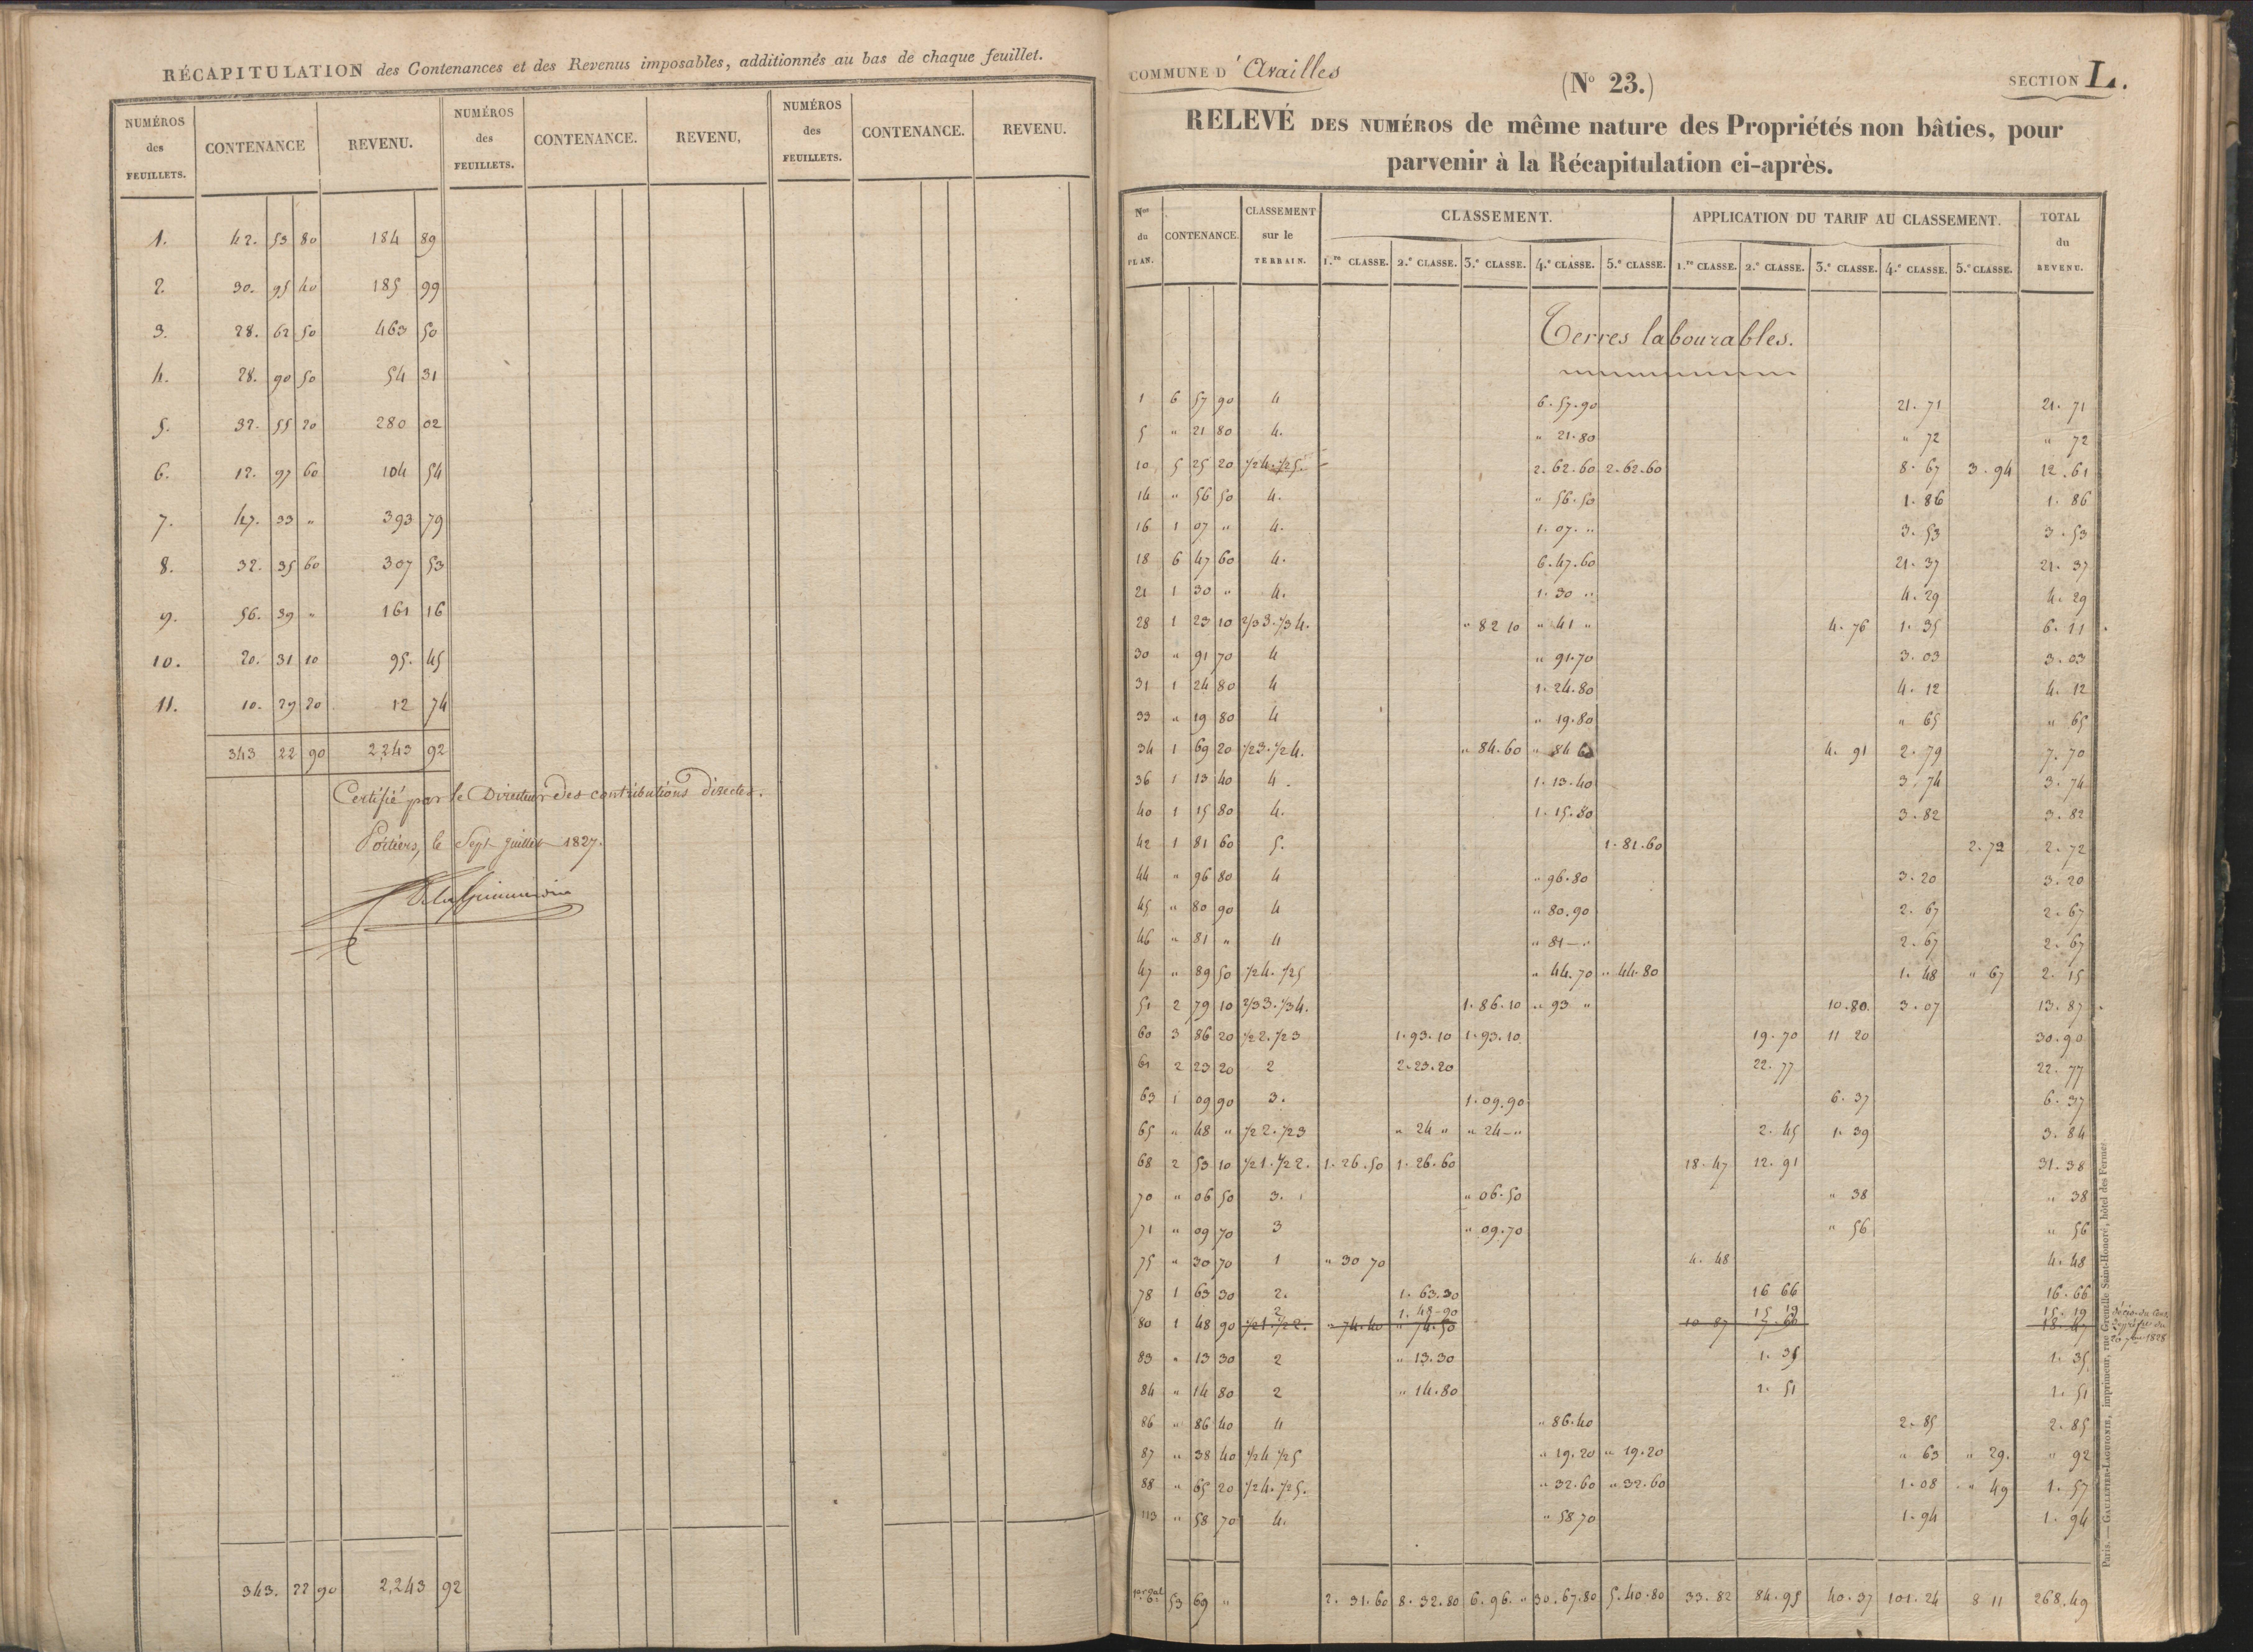 RÉCAPITULATION des Contenances et des Revenus imposables, additionnés au bas de chaque feuillet.
NUMÉROS des FEUILLETS. CONTENANCE REVENU. NUMÉROS des FEUILLETS. CONTENANCE. REVENU, NUMÉROS des FEUILLETS. CONTENANCE. REVENU.
1. 42. 53 80 184 89
2. 30. 95 40 185 99
3. 28. 62 50 463 50
4. 28. 90 50 54 31
5. 32. 55 20 280 02
6. 12. 97 60 104 54
7. 47. 33 " 393 79
8. 32. 35 60 307 53
9. 56. 39 " 161 16
10. 20. 31 10 95. 45
11. 10. 29 20 12 74
343 22 90 2,243 92
Certifié par le Directeur des contributions directes.
Poitiers, le Sept juillet 1827.
343. 22 90 2,243 92
COMMUNE D' Availles
(No 23.)
SECTION L.
RELEVÉ DES NUMÉROS de même nature des Propriétés non bâties, pour
parvenir à la Récapitulation ci-après.
Nos du PLAN. CONTENANCE. CLASSEMENT sur le TERRAIN. CLASSEMENT. APPLICATION DU TARIF AU CLASSEMENT. TOTAL du REVENU.
1.re CLASSE. 2.e CLASSE. 3.e CLASSE. 4.e CLASSE. 5.e CLASSE. 1.re CLASSE. 2.e CLASSE. 3.e CLASSE. 4.e CLASSE. 5.e CLASSE.
Terres labourables.
1 6 57 90 4 6. 57. 90 21. 71 21. 71
5 " 21 80 4. " 21. 80 " 72 " 72
10 5 25 20 1/2 4. 1/2 5. 2. 62. 60 2. 62. 60 8. 67 3. 94 12. 61
14 " 56 50 4. " 56. 50 1. 86 1. 86
16 1 07 " 4. 1. 07. " 3. 53 3. 53
18 6 47 60 4. 6. 47. 60 21. 37 21. 37
21 1 30 " 4. 1. 30 " 4. 29 4. 29
28 1 23 10 2/3 3. 1/3 4. " 82 10 " 41 " 4. 76 1. 35 6. 11
30 " 91 70 4 " 91. 70 3. 03 3. 03
31 1 24 80 4 1. 24. 80 4. 12 4. 12
33 " 19 80 4 " 19. 80 " 65 " 65
34 1 69 20 1/2 3. 1/2 4. " 84. 60 " 84 60 4. 91 2. 79 7. 70
36 1 13 40 4. 1. 13. 40 3. 74 3. 74
40 1 15 80 4. 1. 15. 80 3. 82 3. 82
42 1 81 60 5. 1. 81. 60 2. 72 2. 72
44 " 96 80 4 " 96. 80 3. 20 3. 20
45 " 80 90 4 " 80. 90 2. 67 2. 67
46 " 81 " 4 " 81 — " 2. 67 2. 67
47 " 89 50 1/2 4. 1/2 5 " 44. 70 " 44. 80 1. 48 " 67 2. 15
51 2 79 10 2/3 3. 1/3 4. 1. 86. 10 " 93 " 10. 80. 3. 07 13. 87
60 3 86 20 1/2 2. 1/2 3 1. 93. 10 1. 93. 10 19. 70 11 20 30. 90
61 2 23 20 2 2. 23. 20 22. 77 22. 77
63 1 09 90 3. 1. 09. 90 6. 37 6. 37
65 " 48 " 1/2 2. 1/2 3 " 24 " " 24 — " 2. 45 1. 39 3. 84
68 2 53 10 1/2 1. 1/2 2. 1. 26. 50 1. 26. 60 18. 47 12. 91 31. 38
70 " 06 50 3. " 06. 50 " 38 " 38
71 " 09 70 3 " 09. 70 " 56 " 56
75 " 30 70 1 " 30 70 4. 48 4. 48
78 1 63 30 2. 1. 63. 30 16 66 16. 66
2 1. 48 - 90 15 19 15. 19
80 1 48 90 1/2 1. 1/2 2. " 74. 40 " 74. 50 10 87 7. 60 18. 47
83 " 13 30 2 " 13. 30 1. 35 1. 35
84 " 14 80 2 " 14. 80 1. 51 1. 51
86 " 86 40 4 " 86. 40 2. 85 2. 85
87 " 38 40 1/2 4 1/2 5 " 19. 20 " 19. 20 " 63 " 29. " 92
88 " 65 20 1/2 4. 1/2 5. " 32. 60 " 32. 60 1. 08 " 49 1. 57
113 " 58 70 4. " 58 70 1. 94 1. 94
53 69 " 2. 31. 60 8. 32. 80 6. 96. " 30. 67. 80 5. 40. 80 33. 82 84. 95 40. 37 101. 24 8 11 268. 49
Paris. — GAULTIER-LAGUIONIE, imprimeur, rue Grenelle Saint-Honoré, hôtel des Fermes